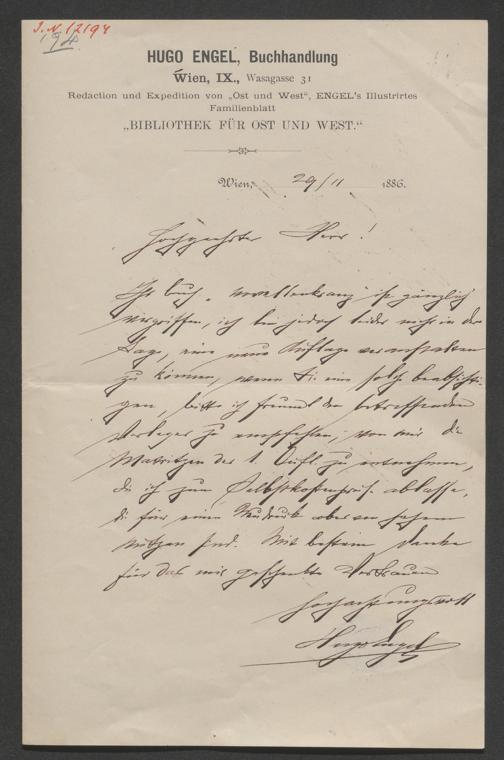 J.N. 12194
194
HUGO ENGEL, Buchhandlung
Wien, IX., Wasagasse 31
Redaction und Expedition von „Ost und West“, ENGEL's Illustrirtes
Familienblatt
„BIBLIOTHEK FÜR OST UND WEST.“
Wien, 29/11 1886.
Hochgeehrter Herr!
Ihr Buch „Novellenkranz“ ist gänzlich
vergriffen, ich bin jedoch leider nicht in der
Lage, eine neue Auflage veranstalten
zu können, wenn Sie eine solche beabsichti-
gen, bitte ich freundl den betreffenden
Verleger zu empfehlen, von mir die
Matritzen der 1. Aufl. zu entnehmen,
die ich zum Selbstkostenpreis ablasse,
die für einen Neudruck aber von hohem
Nutzen sind. Mit bestem Danke
für das mir geschenkte Vertrauen
hochachtungsvoll
Hugo Engel